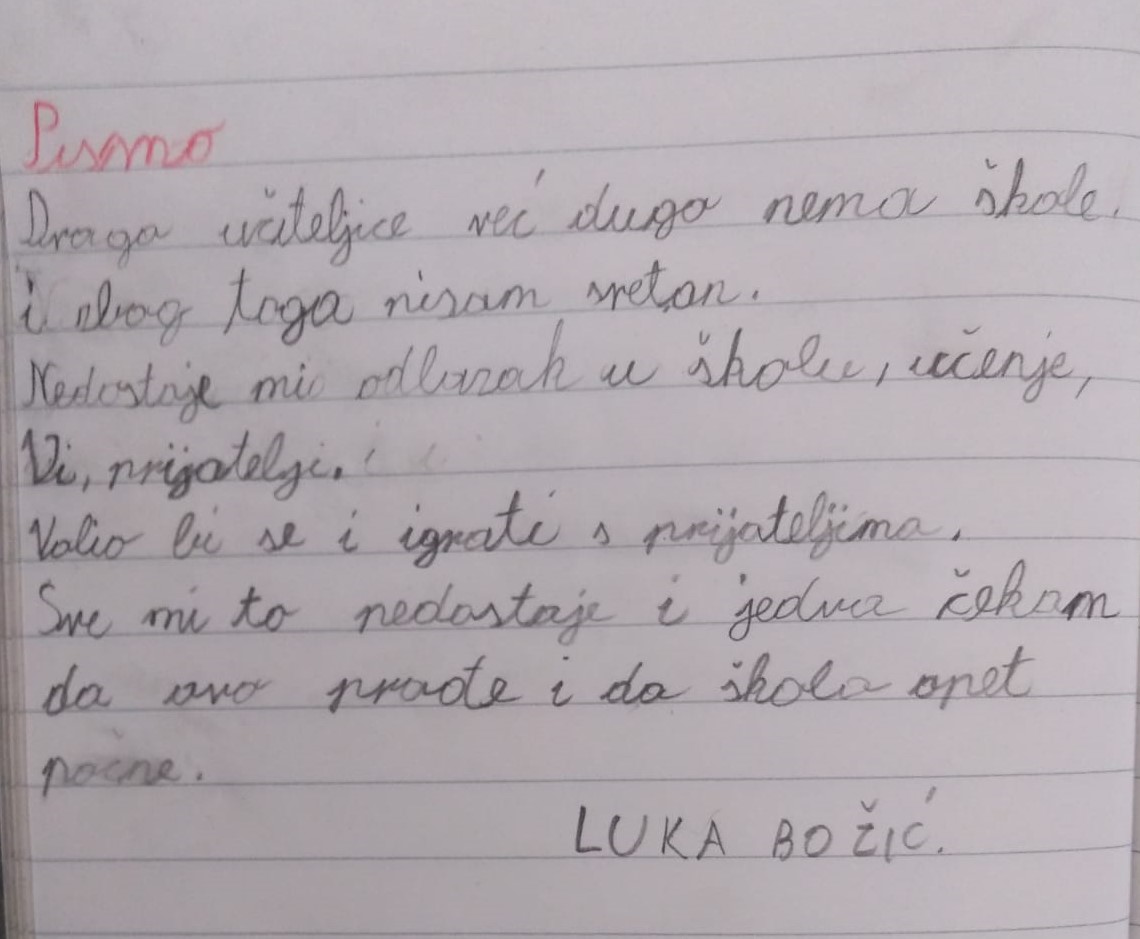 Pismo
Draga učiteljice već dugo nema škole.
i zbog toga nisam sretan.
Nedostaje mi odlazak u školu, učenje,
Vi, prijatelji.
Volio bi se i igrati s prijateljima.
Sve mi to nedostaje i jedva čekam
da ovo prođe i da škola opet
počne.
LUKA BOŽIĆ.